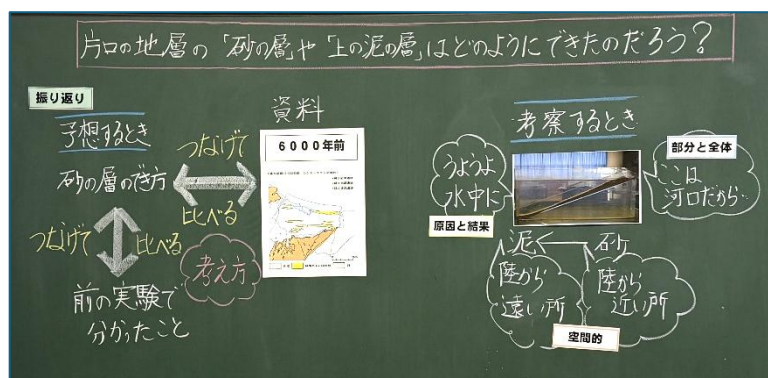 片口の地層の「砂の層」や「上の泥の層」はどのようにできたのだろう？
振り返り
予想するとき
砂の層のでき方
つなげて
比べる
つなげて
比べる
前の実験で
分かったこと
考え方
資料
6000年前
考察するとき
うようよ
水中に
原因と結果
部分と全体
ここは
河口だから…
泥
砂
陸から
遠い所
陸から
近い所
空間的